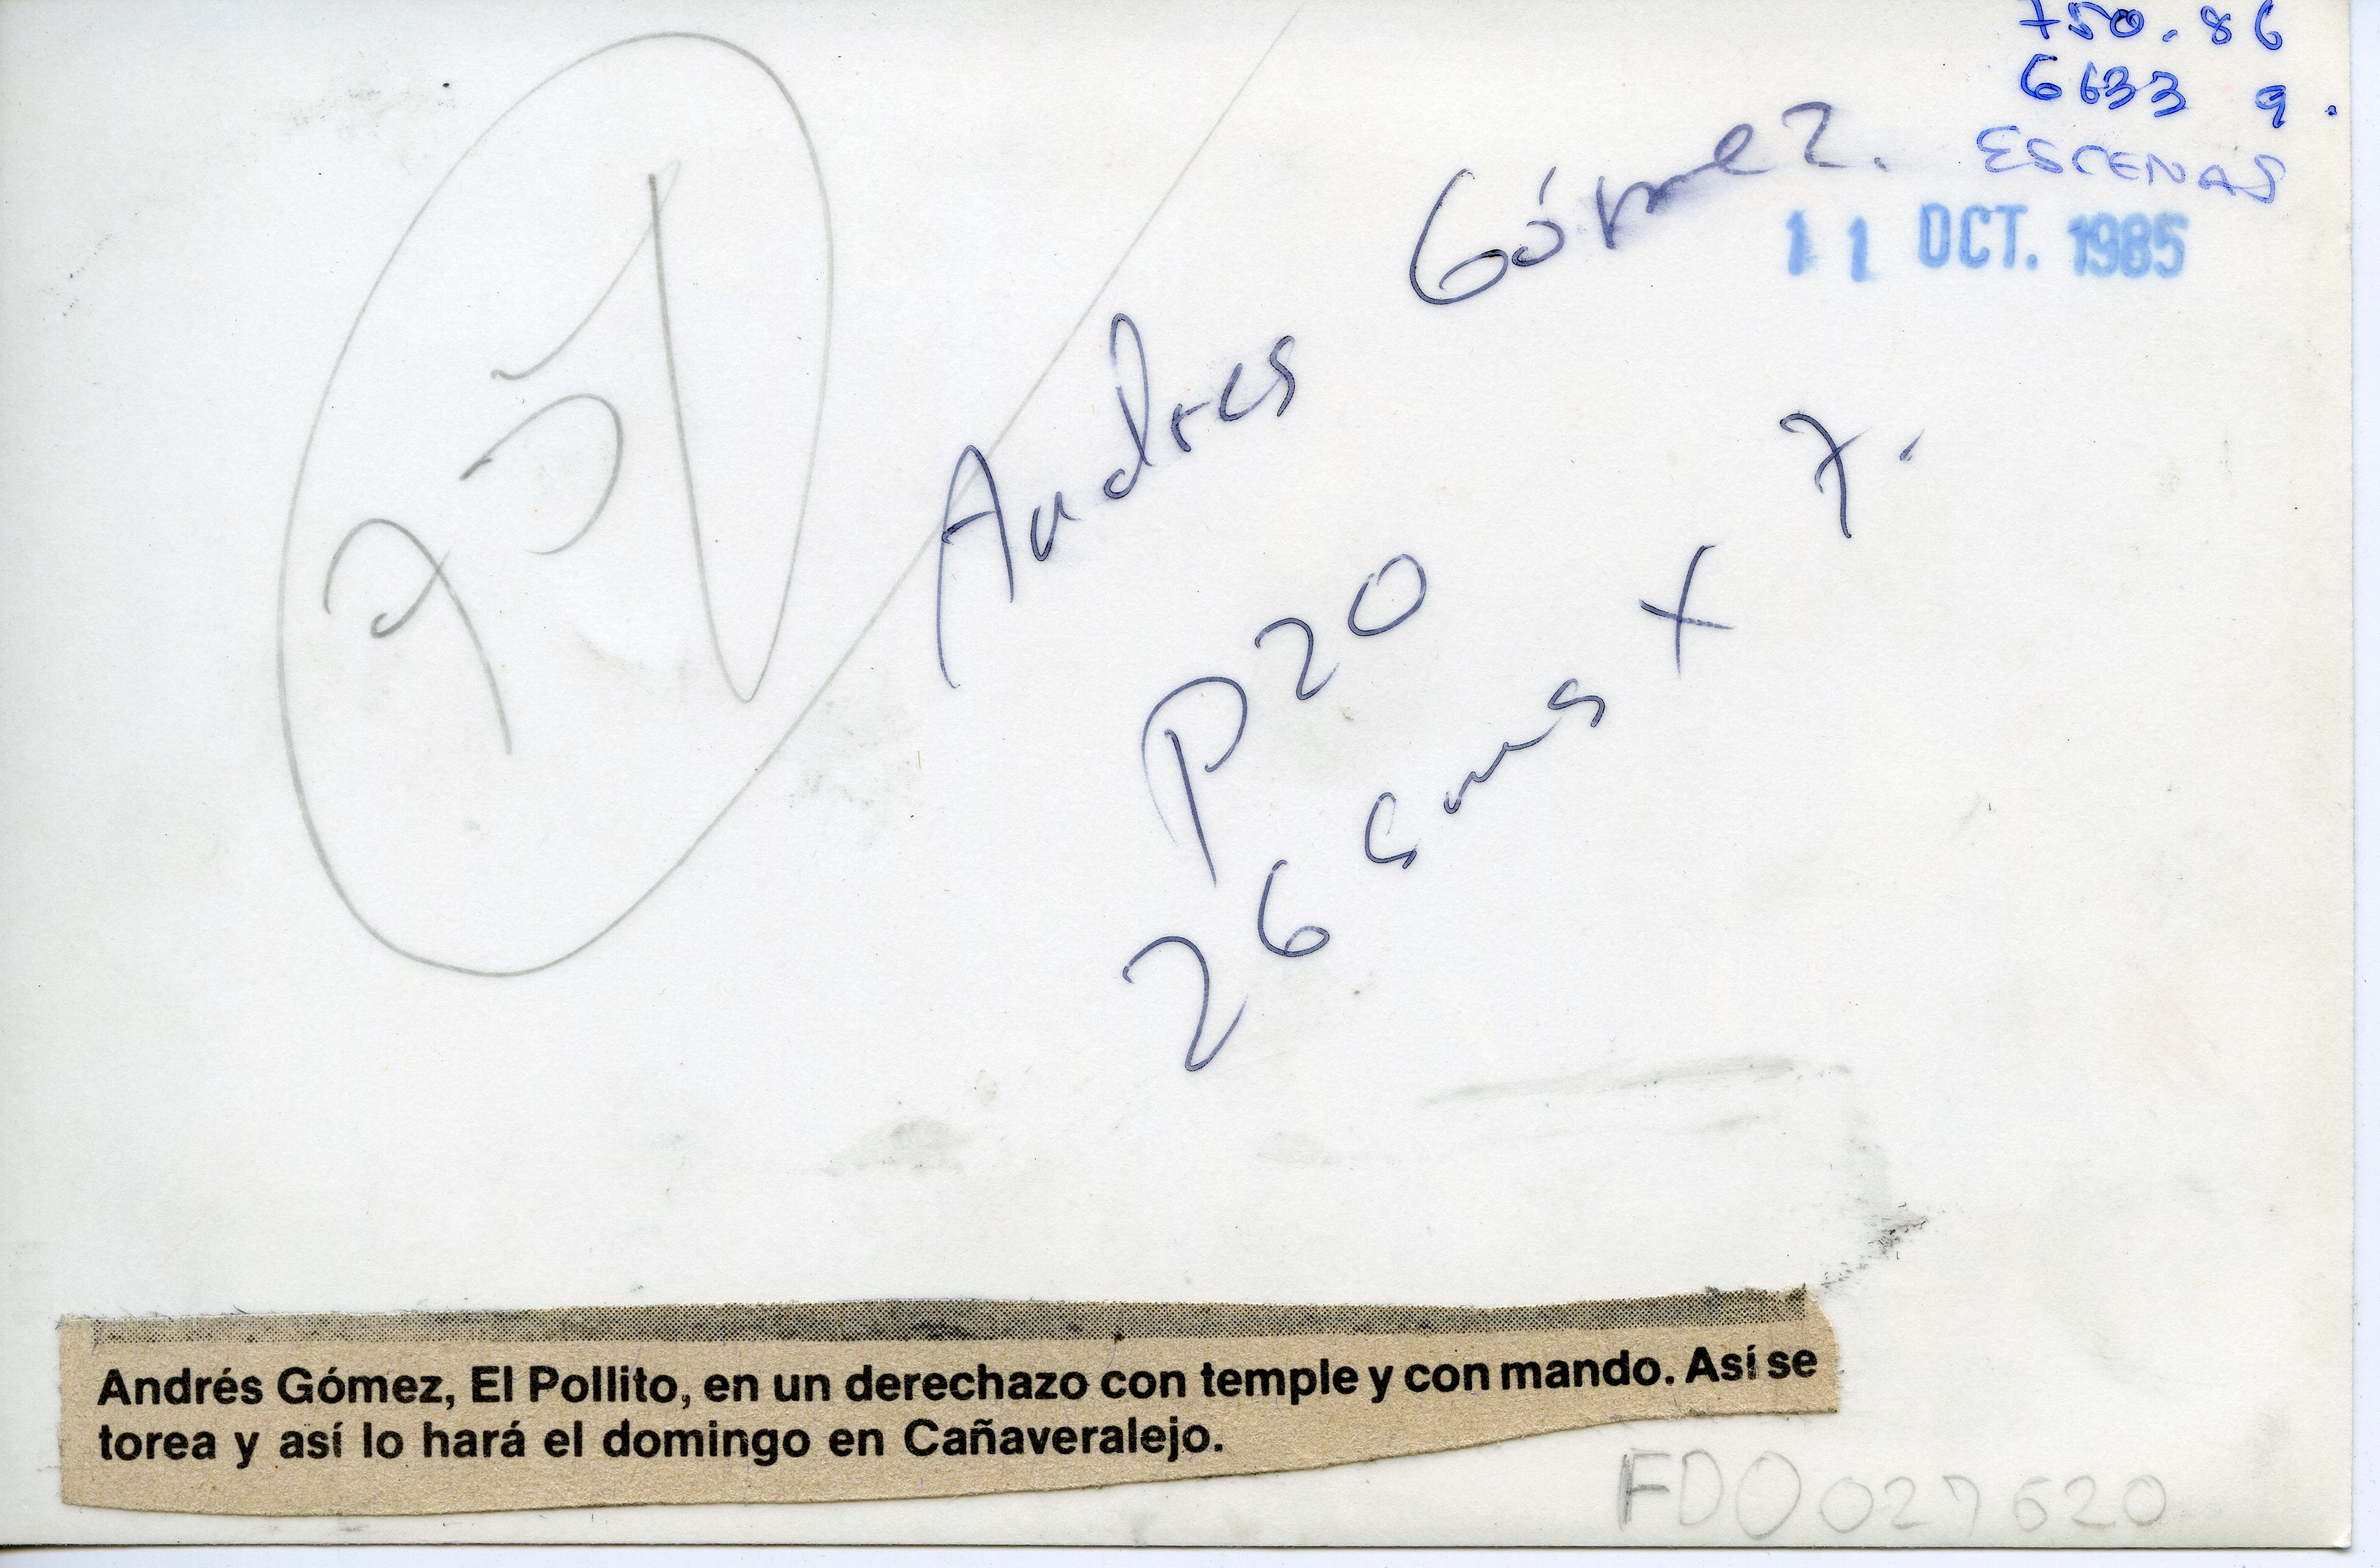 750.86
6633 9.
ESCENAS
11 OCT. 1985
Andres Gómez.
P20
26 cms x 7.
Andrés Gómez, El Pollito, en un derechazo con temple y con mando. Así se
torea y así lo hará el domingo en Cañaveralejo.
FD0027620